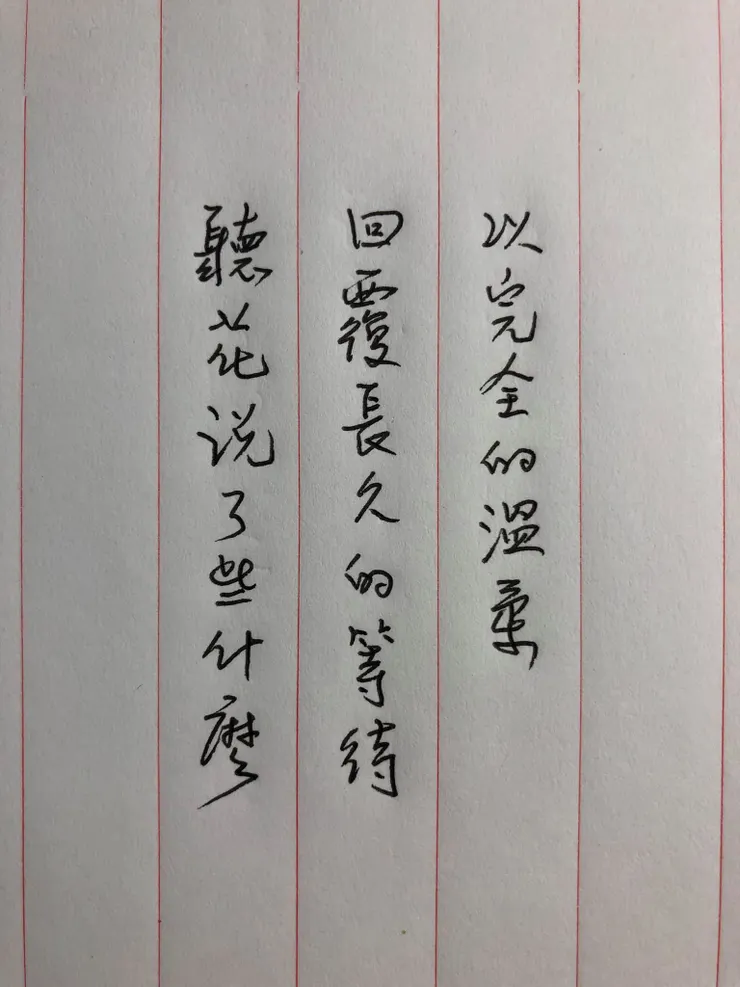 以完全的溫柔
回覆長久的等待
聽花说了些什麼